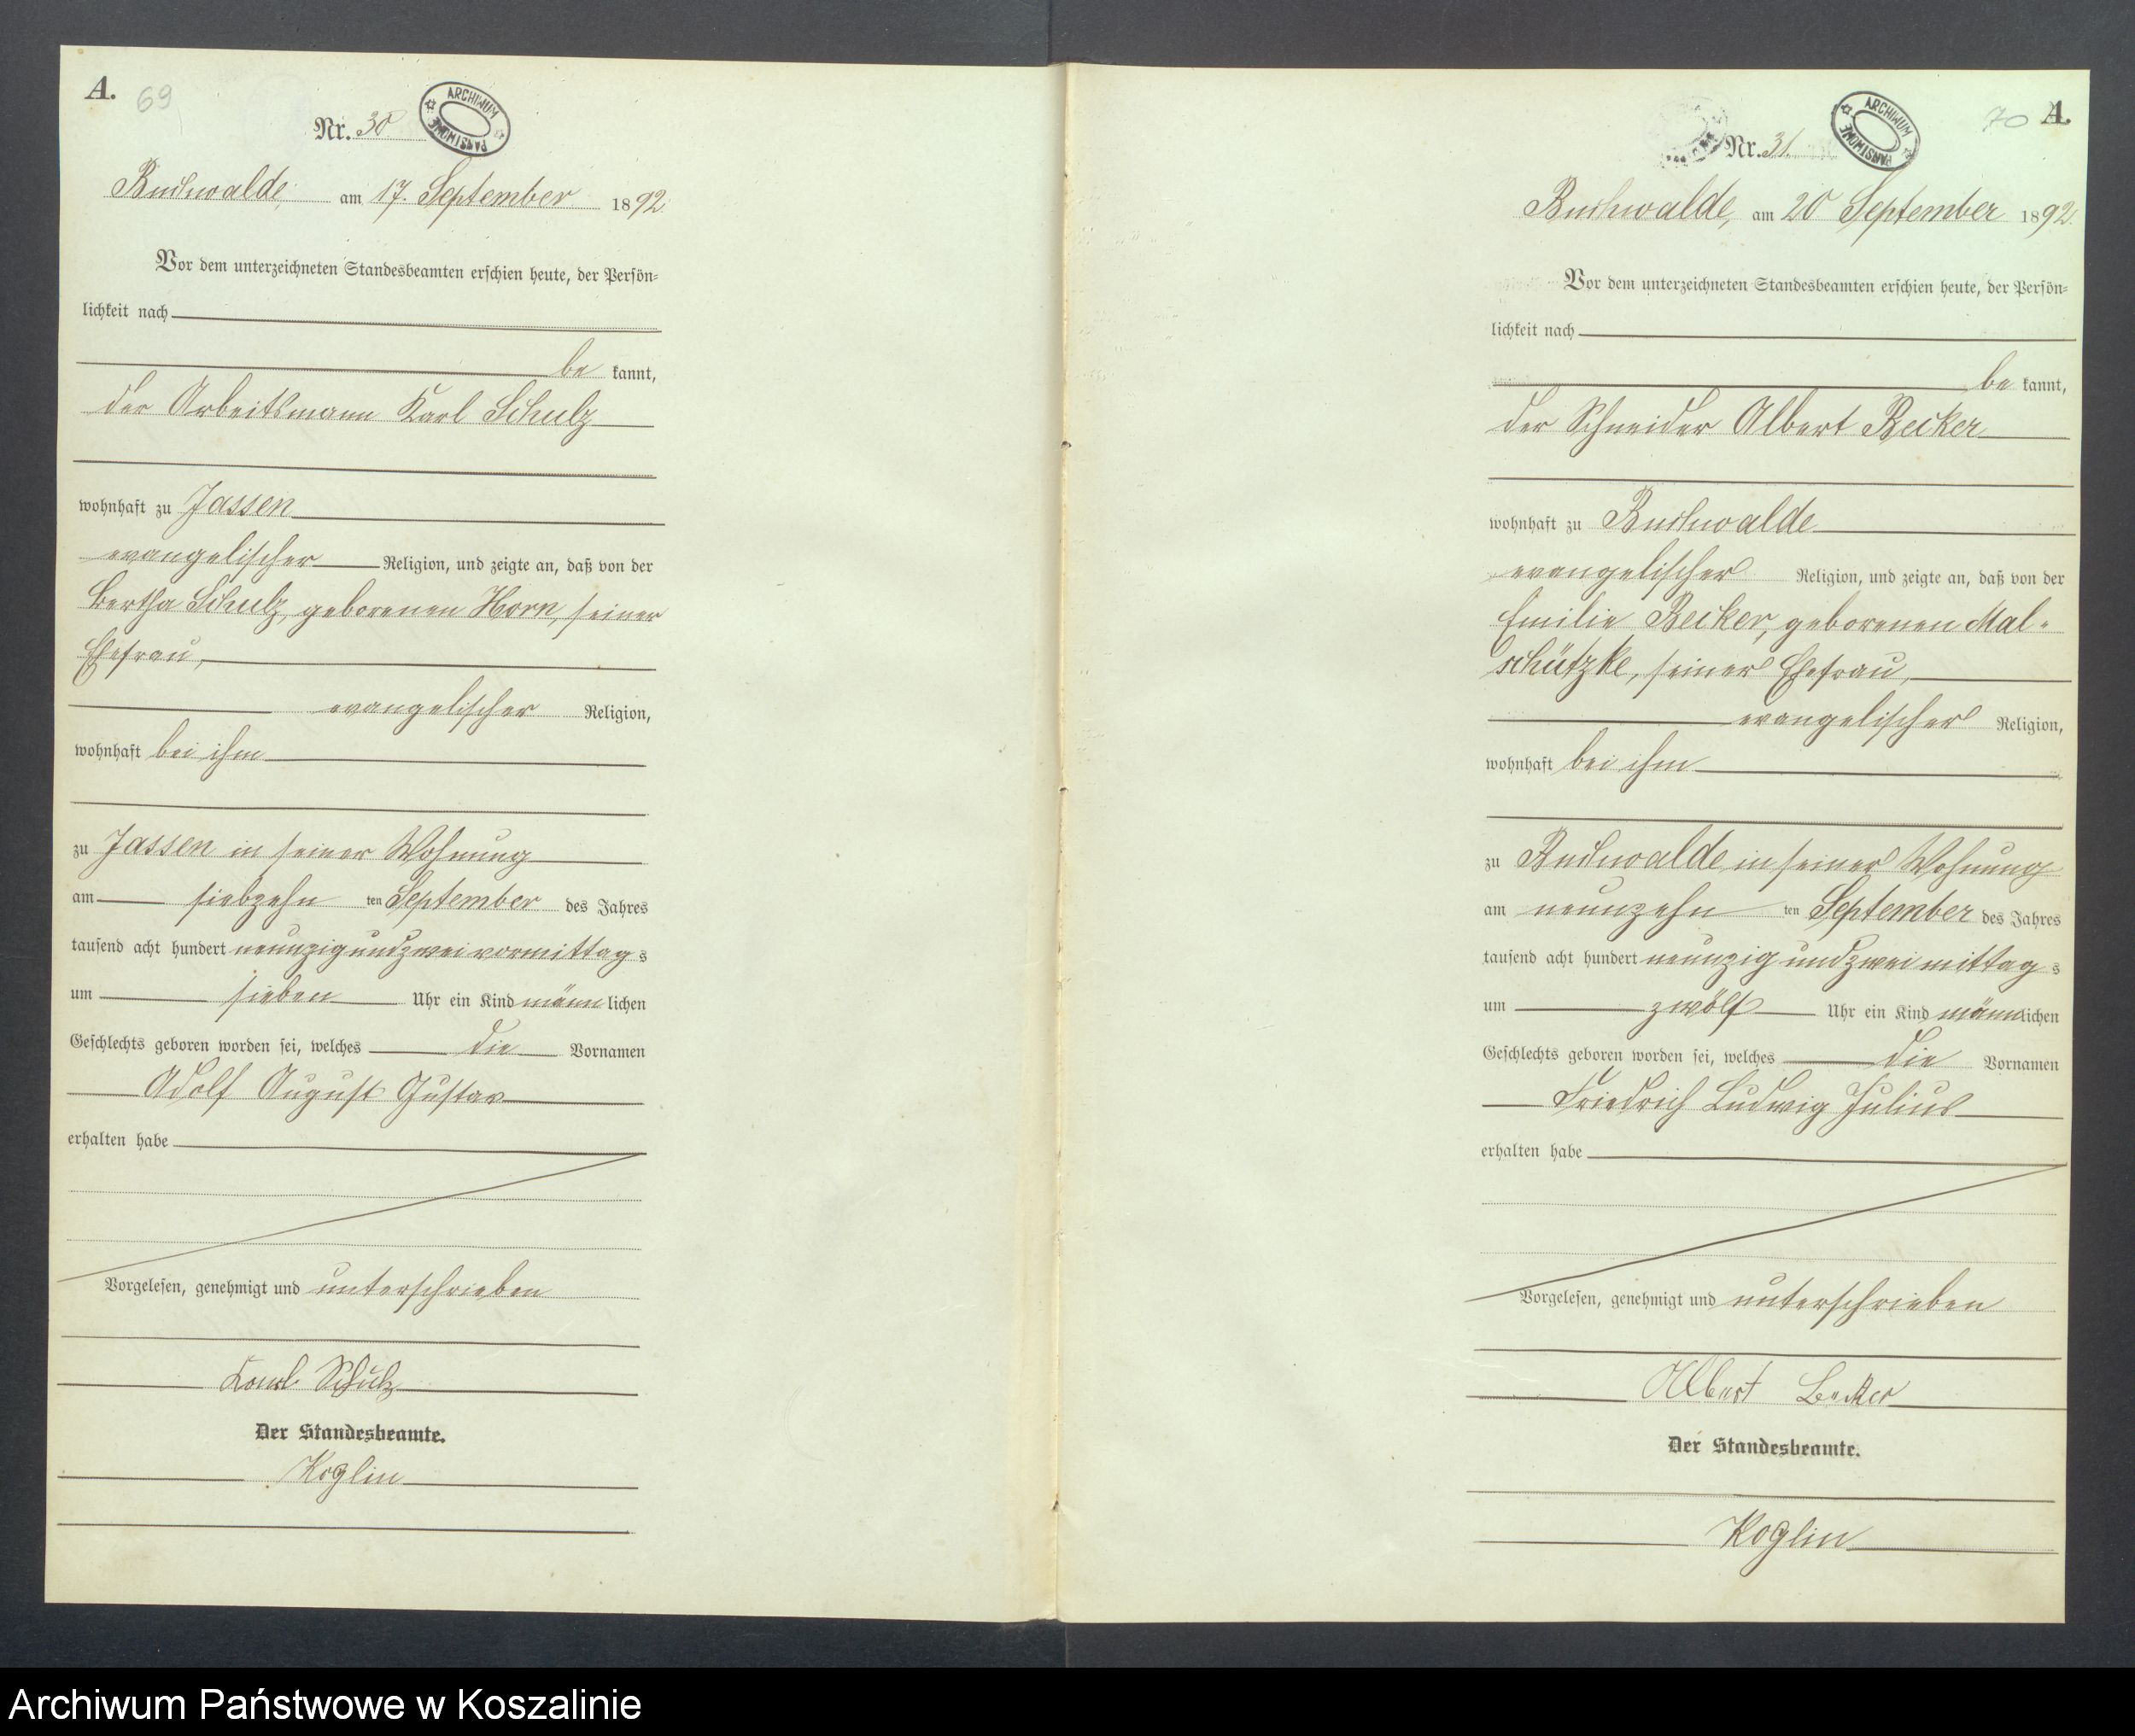 A.
69
Nr. 30
ARCHIWUM PAŃSTWOWE
Buchwalde, am 17. September 1892.
Vor dem unterzeichneten Standesbeamten erschien heute, der Persön-
lichkeit nach
be kannt,
der Arbeitsmann Karl Schulz
wohnhaft zu Jassen
evangelischer Religion, und zeigte an, daß von der
Bertha Schulz, geborenen Horn, seiner
Ehefrau,
evangelischer Religion,
wohnhaft bei ihm
zu Jassen in seiner Wohnung
am siebzehn ten September des Jahres
tausend acht hundert neunzig und zwei vormittag s
um sieben Uhr ein Kind männ lichen
Geschlechts geboren worden sei, welches die Vornamen
Adolf August Gustav
erhalten habe
Vorgelesen, genehmigt und unterschrieben
Karl Schulz
Der Standesbeamte.
Koglin
70
A.
Nr. 31.
ARCHIWUM PAŃSTWOWE
Buchwalde, am 20 September 1892.
Vor dem unterzeichneten Standesbeamten erschien heute, der Persön-
lichkeit nach
be kannt,
der Schneider Albert Becker
wohnhaft zu Buchwalde
evangelischer Religion, und zeigte an, daß von der
Emilie Becker, geborenen Mal-
schützke, seiner Ehefrau,
evangelischer Religion,
wohnhaft bei ihm
zu Buchwalde in seiner Wohnung
am neunzehn ten September des Jahres
tausend acht hundert neunzig und zwei mittag s
um zwölf Uhr ein Kind männlichen
Geschlechts geboren worden sei, welches die Vornamen
Friedrich Ludwig Julius
erhalten habe
Vorgelesen, genehmigt und unterschrieben
Albert Becker
Der Standesbeamte.
Koglin
Archiwum Państwowe w Koszalinie